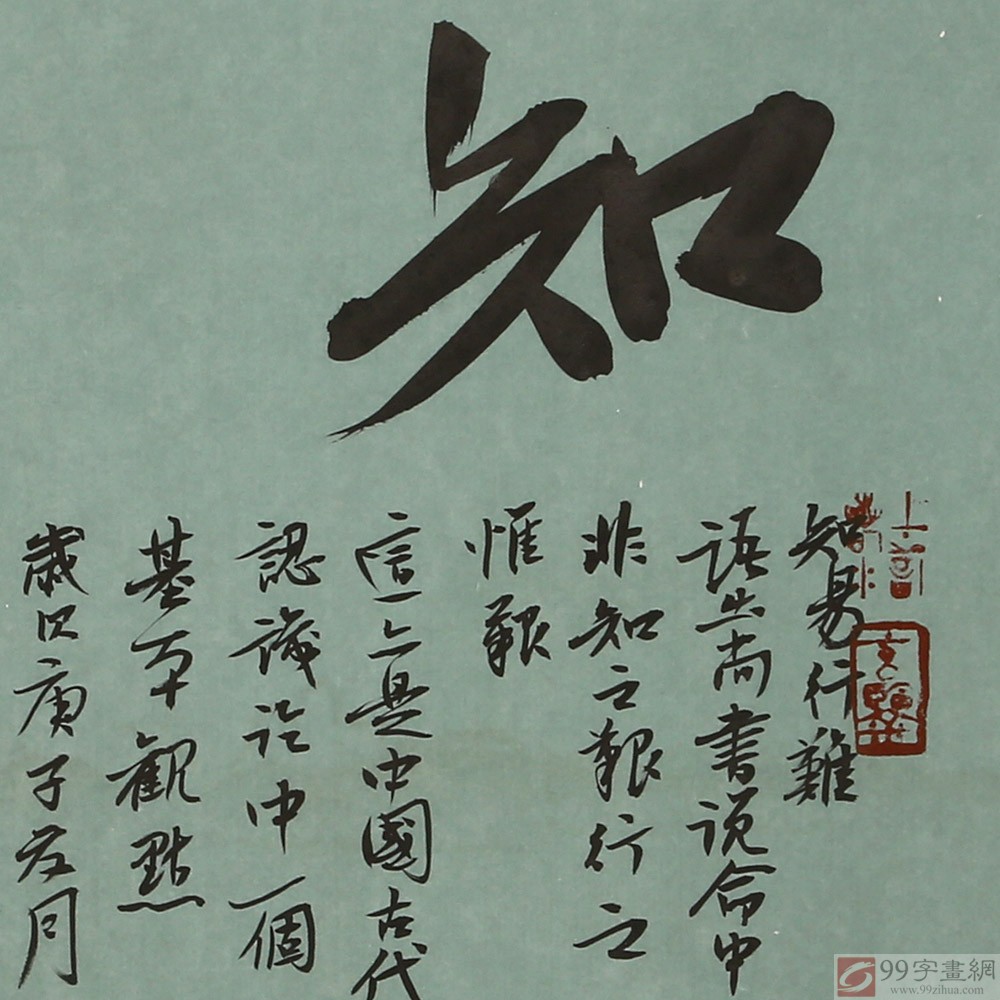 知
知易行難
語出尚書說命中
非知之艱行之
惟艱
這一是中國古代
認識論中一個
基本觀點
歲庚子月
99字畫網
www.99zihua.com